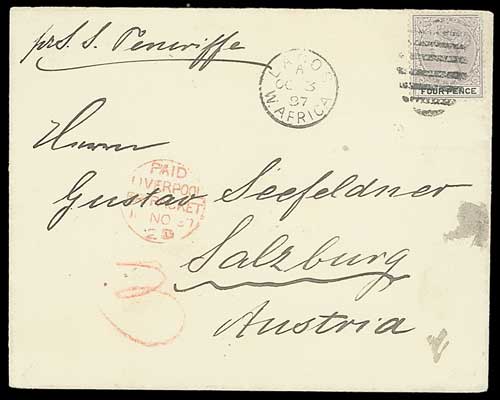 pr S. S. Teneriffe
LAGOS
A
OC 3
97
W. AFRICA
FOUR PENCE
Herrn
PAID
LIVERPOOL
PACKET
NO 97
2
Gustav Seefeldner
Salzburg
Austria